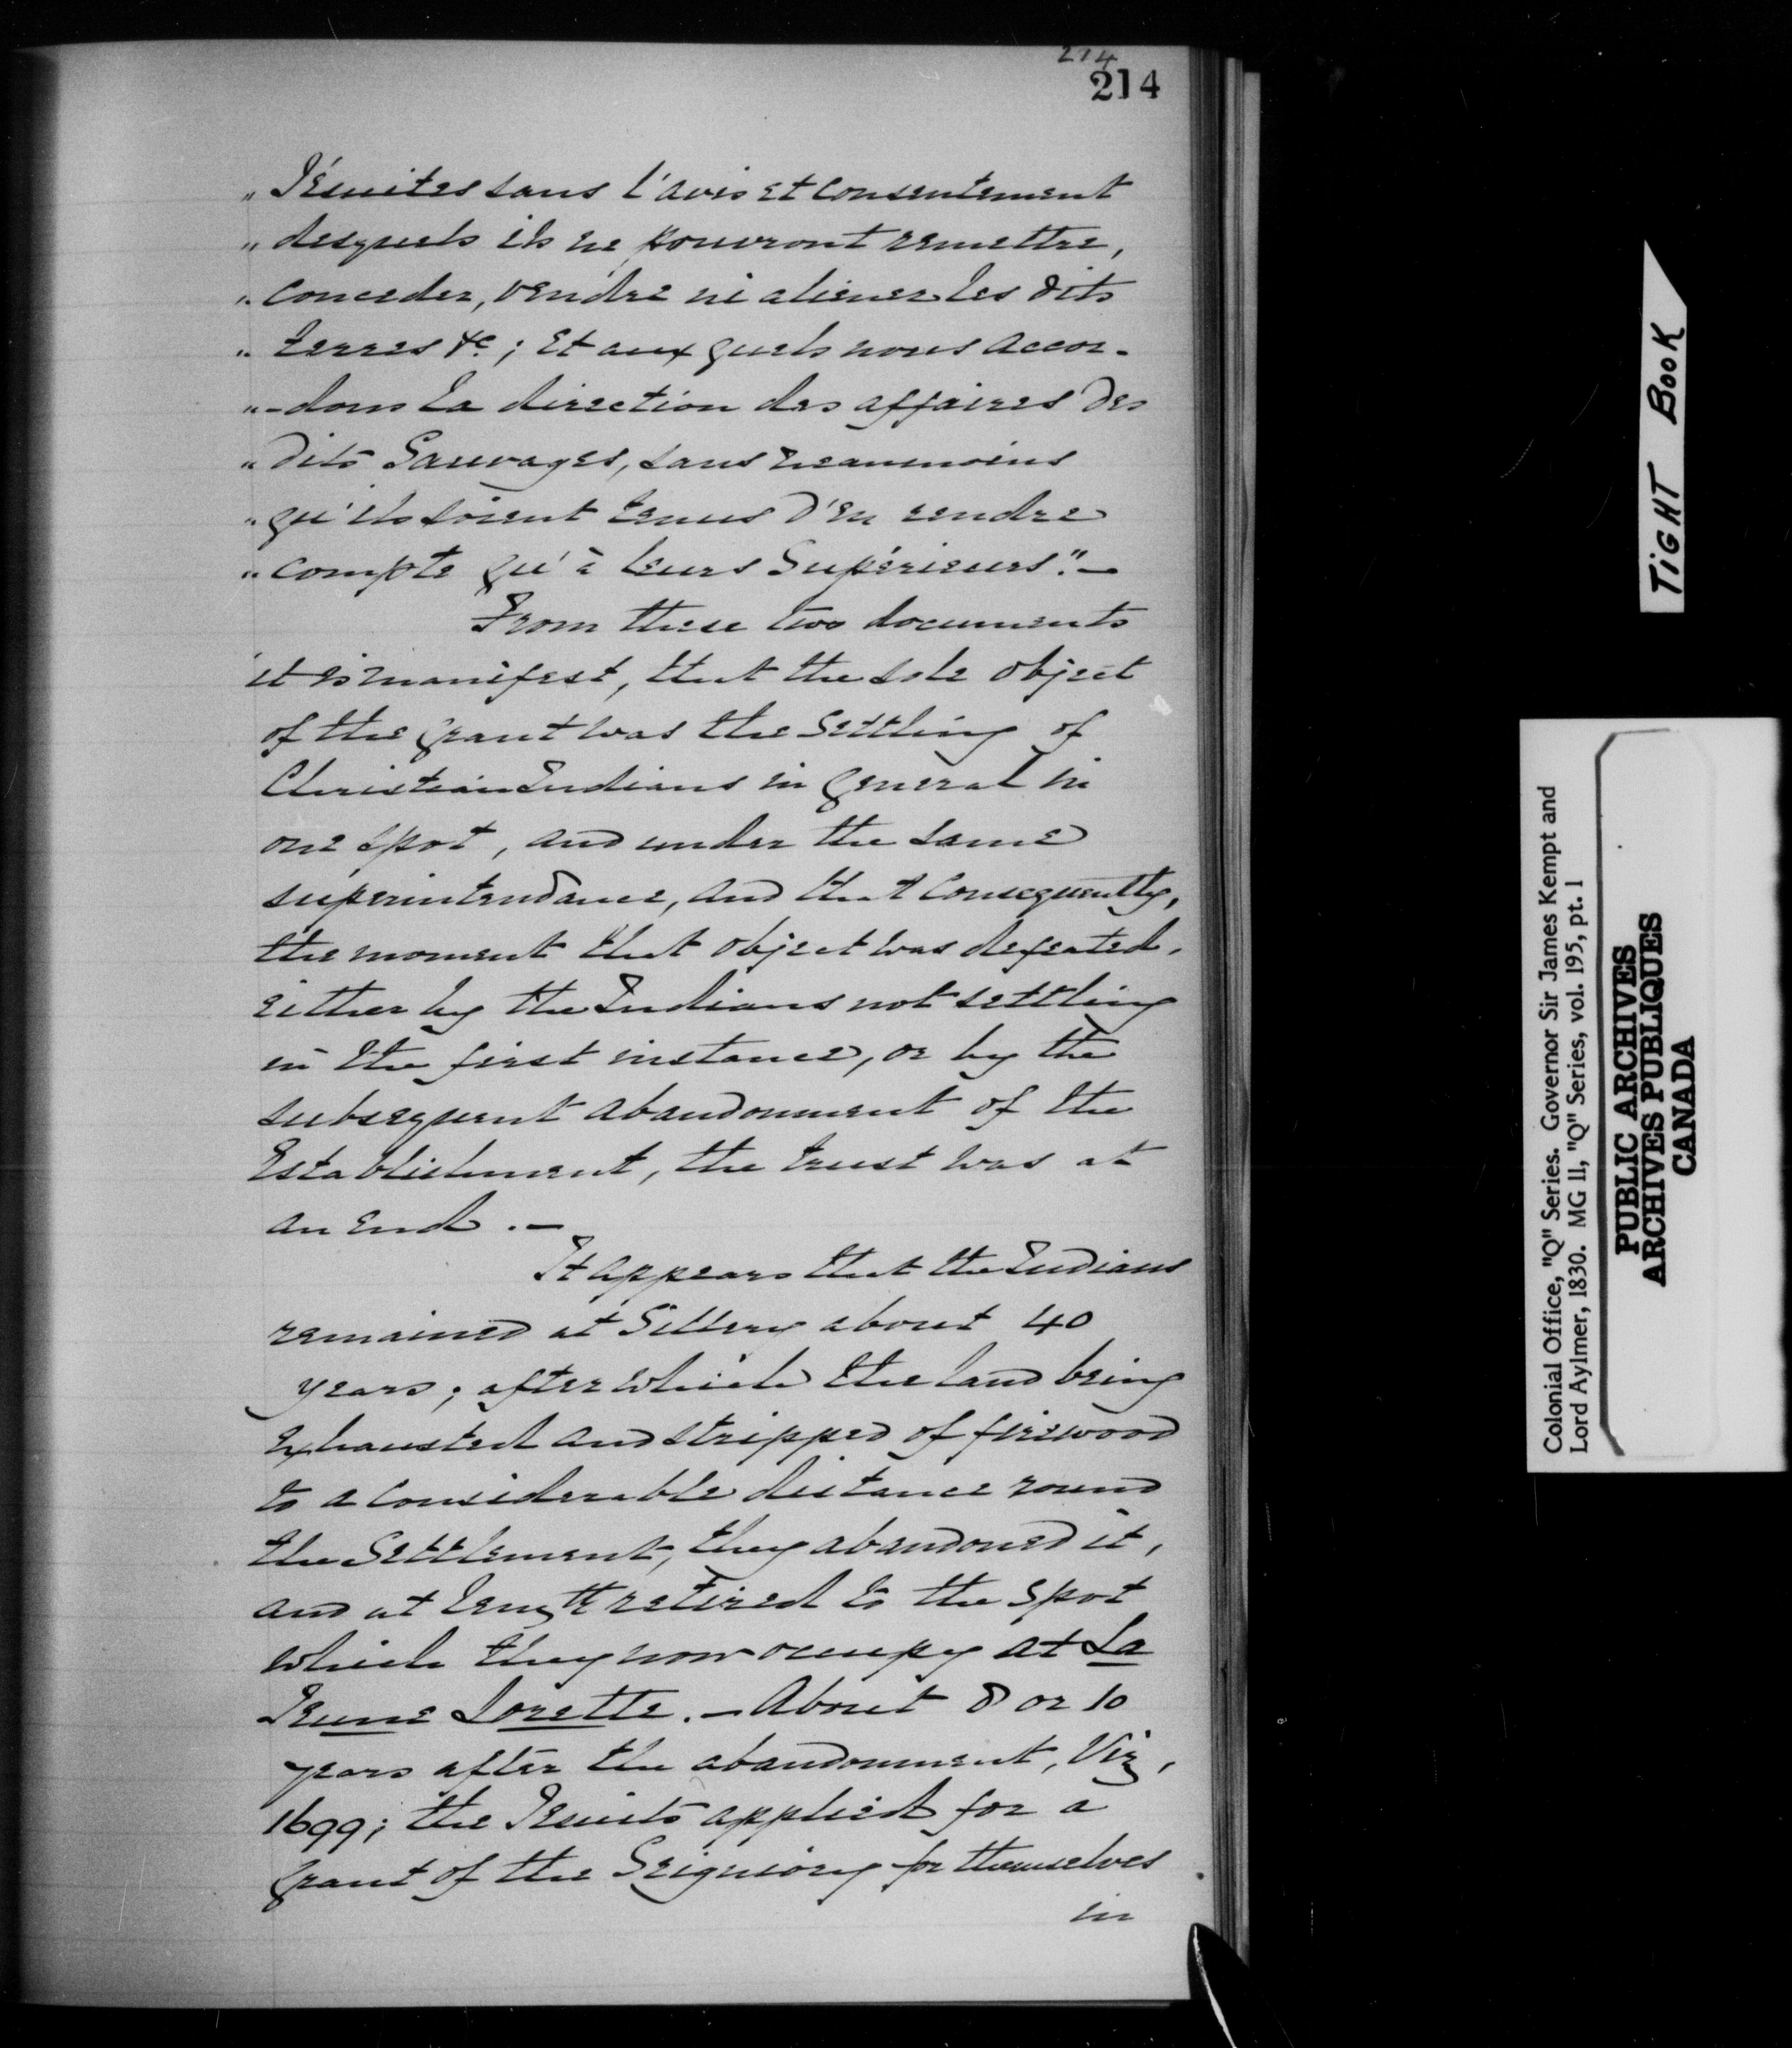 214
214
„ Jésuites sans l'avis et consentement
„ desquels ils ne pouvront remettre,
„ conceder, vendre ni aliener les dits
„ terres &c; et aux quels nous accor-
„ -dons la direction des affaires des
„ dits Sauvages, sans neanmoins
„ qu'ils soient tenus d'en rendre
„ compte qu'à leurs Supérieurs."—
From these two documents
it is manifest, that the sole object
of the grant was the settling of
Christian Indians in general in
one spot, and under the same
superintendance, and that consequently,
the moment that object was defeated,
either by the Indians not settling
in the first instance, or by the
subsequent abandonment of the
Establishment, the trust was at
an end.—
It appears that the Indians
remained at Sillery about 40
years; after which the land being
exhausted and stripped of firewood
to a considerable distance round
the Settlement, they abandoned it,
and at length retired to the spot
which they now occupy at La
Jeune Lorette.— About 8 or 10
years after the abandonment, Viz,
1699; the Jesuits applied for a
grant of the Seigniory for themselves
in
TIGHT BOOK
Colonial Office, "Q" Series. Governor Sir James Kempt and
Lord Aylmer, 1830. MG 11, "Q" Series, vol. 195, pt. 1
PUBLIC ARCHIVES
ARCHIVES PUBLIQUES
CANADA